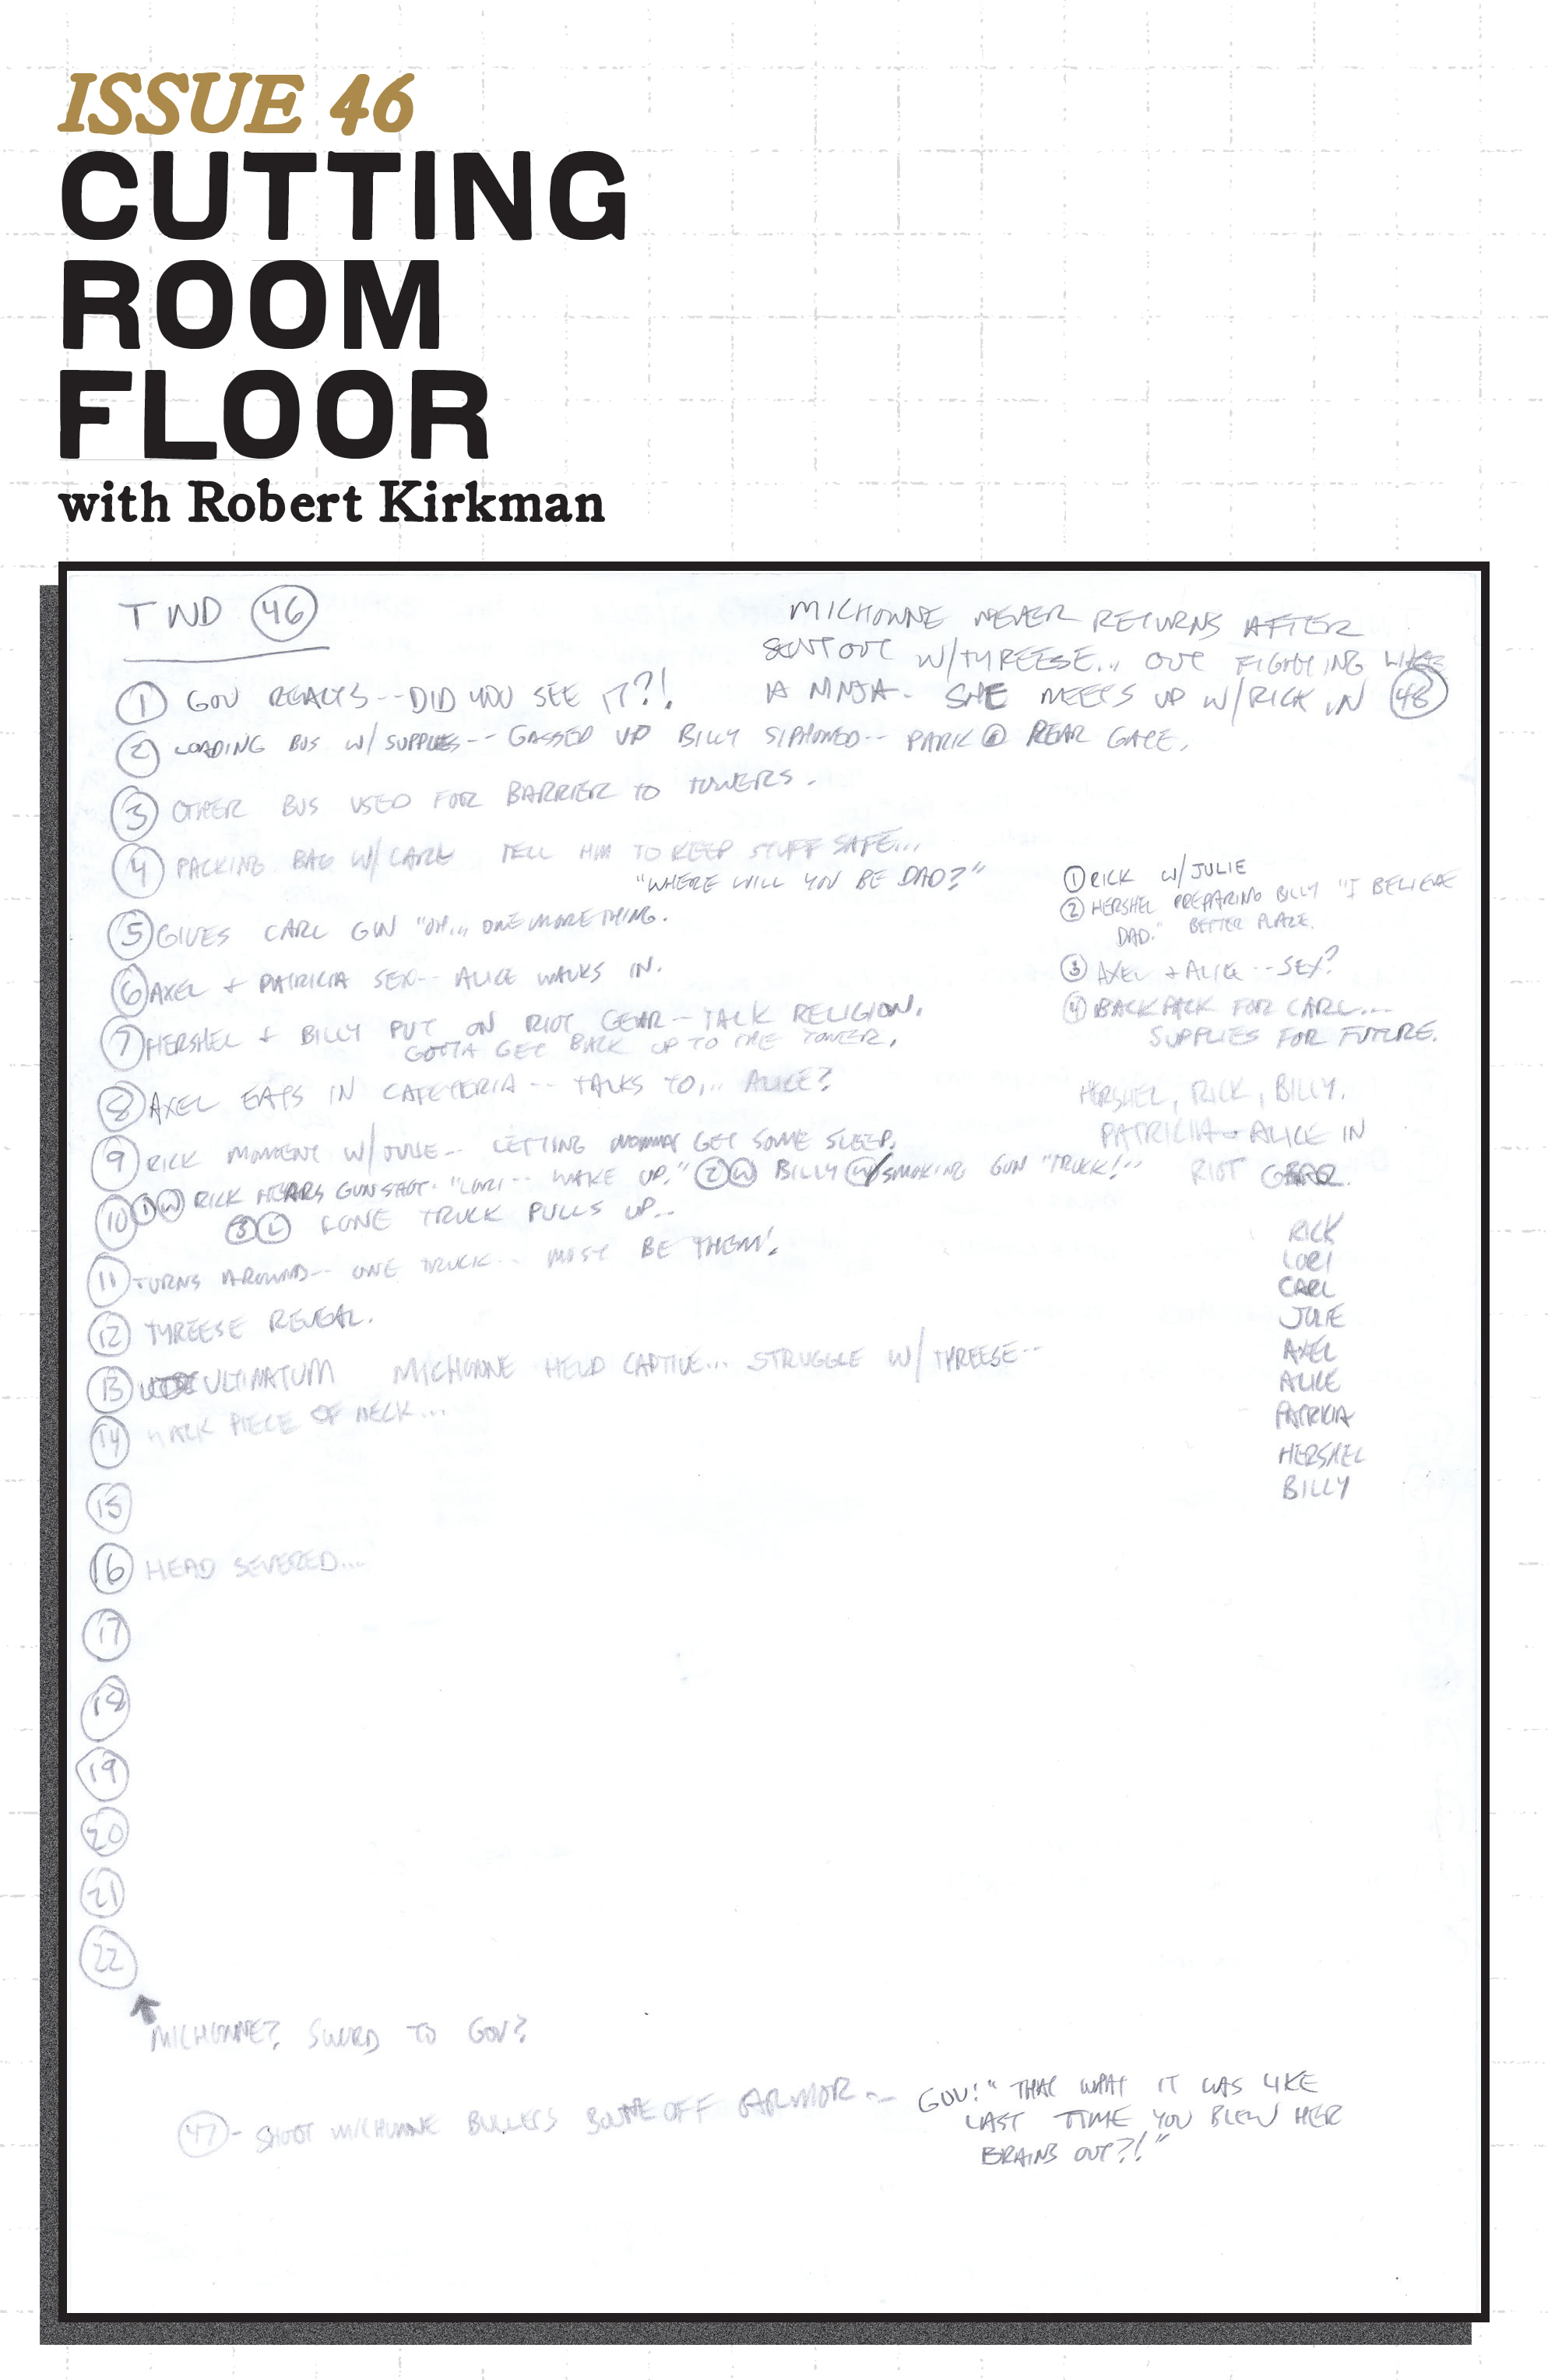 ISSUE 46
CUTTING
ROOM
FLOOR
with Robert Kirkman
TWD 46
MICHONNE NEVER RETURNS AFTER
SENT OUT W/TYREESE... OUT FIGHTING LIKE
A NINJA- SHE MEETS UP W/RICK IN 48
1 GOV REACTS--DID YOU SEE IT?!
2 LOADING BUS W/ SUPPLIES-- GASSED UP BILLY SIPHONED-- PARK @ REAR GATE.
3 OTHER BUS USED FOR BARRIER TO TOWERS.
4 PACKING BAG W/ CARL TELL HIM TO KEEP STUFF SAFE...
"WHERE WILL YOU BE DAD?"
5 GIVES CARL GUN "OH... ONE MORE THING.
6 AXEL + PATRICIA SEX-- ALICE WALKS IN.
7 HERSHEL + BILLY PUT ON RIOT GEAR-- TALK RELIGION.
GOTTA GET BACK UP TO THE TOWER.
8 AXEL EATS IN CAFETERIA -- TALKS TO... ALICE?
9 RICK MOMENT W/JULIE-- LETTING MOMMY GET SOME SLEEP.
10 1 W RICK HEARS GUNSHOT- "LORI-- WAKE UP." 2 W BILLY W/SMOKING GUN "TRUCK!--
3 L LONE TRUCK PULLS UP--
11 TURNS AROUND-- ONE TRUCK-- MUST BE THEM!
12 TYREESE REVEAL.
13 ULTIMATUM MICHONNE HELD CAPTIVE... STRUGGLE W/ TYREESE--
14 HACK PIECE OF NECK...
15
16 HEAD SEVERED...
17
18
19
20
21
22
MICHONNE? SWORD TO GOV?
47 - SHOOT MICHONNE BULLETS BOUNCE OFF ARMOR -- GOV: "THAT WHAT IT WAS LIKE
LAST TIME YOU BLEW HER
BRAINS OUT?!"
1 RICK W/JULIE
2 HERSHEL PREPARING BILLY "I BELIEVE
DAD." BETTER PLACE.
3 AXEL + ALICE -- SEX?
4 BACKPACK FOR CARL...
SUPPLIES FOR FUTURE.
HERSHEL, RICK, BILLY,
PATRICIA + ALICE IN
RIOT GEAR.
RICK
LORI
CARL
JULIE
AXEL
ALICE
PATRICIA
HERSHEL
BILLY